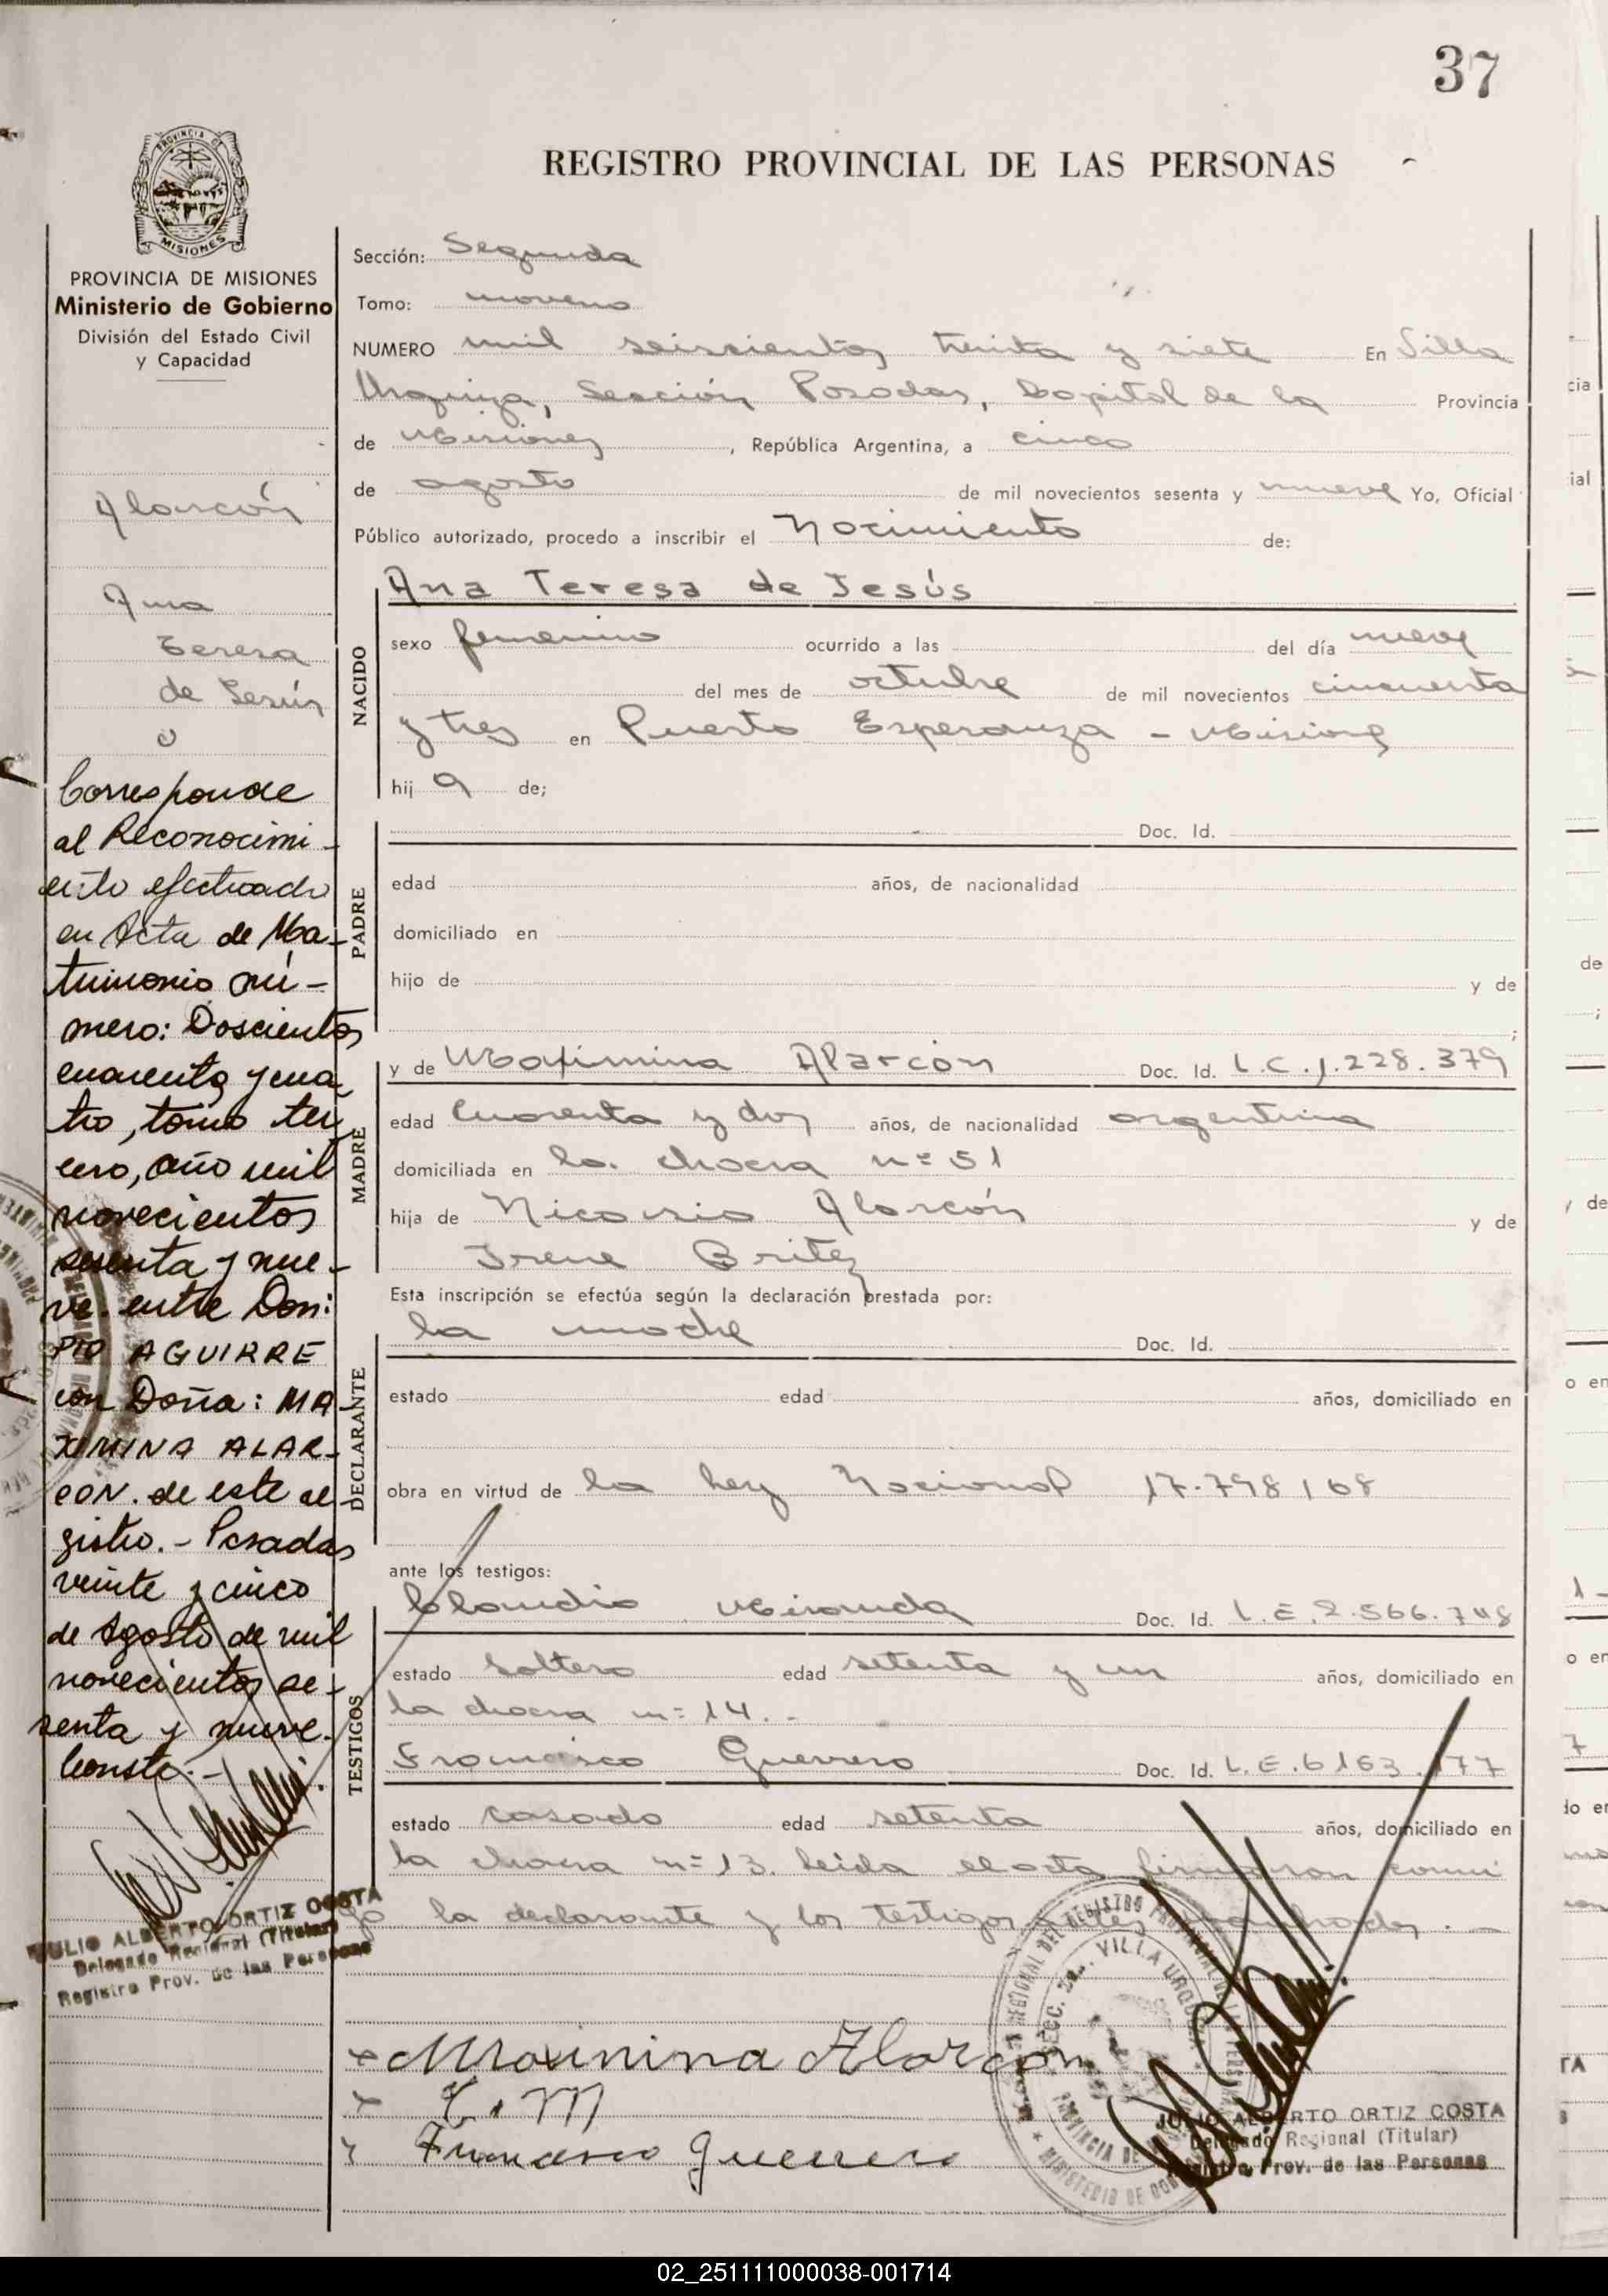 37
REGISTRO PROVINCIAL DE LAS PERSONAS
PROVINCIA DE MISIONES
PROVINCIA DE MISIONES
Ministerio de Gobierno
División del Estado Civil
y Capacidad
Alarcón
Ana
Teresa
de Jesús
Corresponde
al Reconocimi-
ento efectuado
en Acta de Ma-
trimonio nú-
mero: Doscientos
cuarenta y cua
tro, tomo ter
cero, año mil
novecientos
sesenta y nue-
ve. entre Don:
PIO AGUIRRE
con Doña: MA
XIMINA ALAR-
CON. de este Re
gistro.- Posadas
veinte y cinco
de Agosto de mil
novecientos se-
senta y nueve.
Conste.-
JULIO ALBERTO ORTIZ COSTA
Delegado Regional (Titular)
Registro Prov. de las Personas
Sección: Segunda
Tomo: noveno
NUMERO mil seiscientos treinta y siete En Villa
Urquiza, Sección Posadas, Capital de la Provincia
de Misiones, República Argentina, a cinco
de agosto de mil novecientos sesenta y nueve Yo, Oficial
Público autorizado, procedo a inscribir el Nacimiento de:
NACIDO
Ana Teresa de Jesús
sexo femenino ocurrido a las del día nueve
del mes de octubre de mil novecientos cincuenta
y tres en Puerto Esperanza - Misiones
hij a de;
PADRE
Doc. Id.
edad años, de nacionalidad
domiciliado en
hijo de y de
;
MADRE
y de Maximina Alarcón Doc. Id. L.C.1.228.379
edad Cuarenta y dos años, de nacionalidad argentina
domiciliada en la chacra n=51
hija de Nicasio Alarcón y de
Irene Britez
Esta inscripción se efectúa según la declaración prestada por:
DECLARANTE
la madre Doc. Id.
estado edad años, domiciliado en
obra en virtud de la Ley Nacional 17.798/68
ante los testigos:
TESTIGOS
Claudio Miranda Doc. Id. L.E.2.566.748
estado Soltero edad setenta y un años, domiciliado en
la chacra n=14.-
Francisco Guerrero Doc. Id. L.E.6163.177
estado casado edad setenta años, domiciliado en
la chacra n=13. Leída el acta firmaron conmi
go la declarante y los testigos antes nombrados.-
Maximina Alarcón
C. M
Francisco Guerrero
SECC. 2da. VILLA URQUIZA
JULIO ALBERTO ORTIZ COSTA
Delegado Regional (Titular)
Registro Prov. de las Personas
02_251111000038-001714